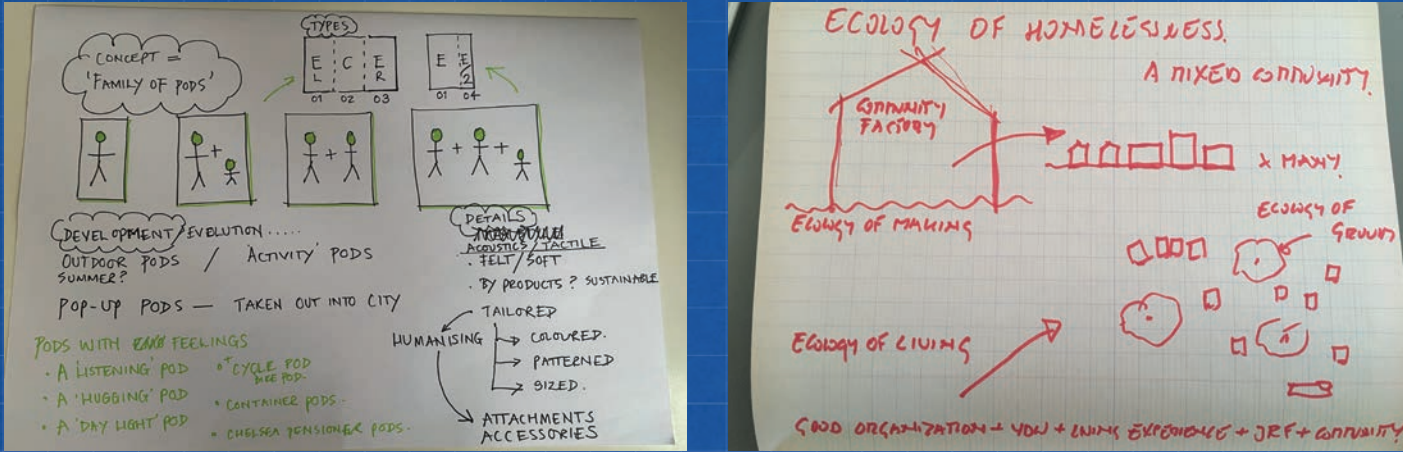 CONCEPT =
'FAMILY OF PODS'
TYPES
E C E E E
L R 2
01 02 03 01 04
+ + + +
DEVELOPMENT / EVOLUTION.....
OUTDOOR PODS / 'ACTIVITY' PODS
SUMMER?
POP-UP PODS — TAKEN OUT INTO CITY
PODS WITH FEELINGS
• A 'LISTENING' POD
• A 'HUGGING' POD
• A 'DAY LIGHT' POD
CYCLE POD
• CONTAINER PODS.
• CHELSEA PENSIONER PODS.
DETAILS
ACOUSTICS / TACTILE
• FELT / SOFT
• BY PRODUCTS? SUSTAINABLE
TAILORED
HUMANISING
COLOURED.
PATTERNED
SIZED.
ATTACHMENTS
ACCESSORIES
ECOLOGY OF HOMELESSNESS.
A MIXED COMMUNITY.
COMMUNITY
FACTORY
X MANY
ECOLOGY OF MAKING
ECOLOGY OF
GROUND
ECOLOGY OF LIVING
GOOD ORGANIZATION + YOU + LIVING EXPERIENCE + JRF + COMMUNITY